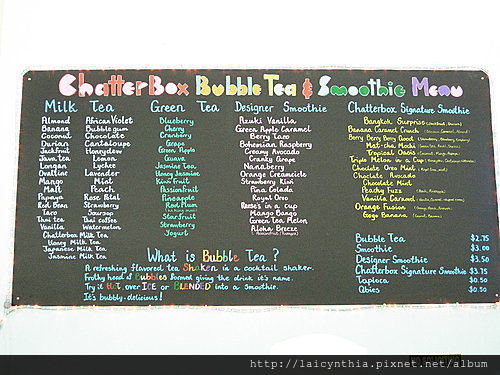 ChatterBox Bubble Tea & Smoothie Menu
Milk Tea
Almond African Violet
Banana Bubblegum
Coconut Chocolate
Durian Cantaloupe
Jackfruit Honeydew
Java Tea Lemon
Longan Lychee
Ovaltine Lavender
Mango Mint
Malt Peach
Papaya Rose Petal
Red Bean Strawberry
Taro Soursop
Thai tea Thai coffee
Vanilla Watermelon
Chatterbox Milk Tea
Honey Milk Tea
Japanese Milk Tea
Jasmine Milk Tea
Green Tea
Blueberry
Cherry
Cranberry
Grape
Green Apple
Guava
Jasmine Tea
Honey Jasmine
Kiwi Fruit
Passionfruit
Pineapple
Red Plum
Starfruit
Strawberry
Yogurt
Designer Smoothie
Azuki Vanilla
Green Apple Caramel
Berry Taro
Bohemian Raspberry
Creamy Avocado
Cranky Grape
Nanaberry
Orange Creamsicle
Strawberry Kiwi
Pina Colada
Royal Oreo
Reese's in a cup
Mango Bango
Green Tea Melon
Aloha Breeze
Chatterbox Signature Smoothie
Bangkok Surprise
Banana Caramel Crunch
Berry Berry Berry Good
Mat-cha Mochi
Tropical Oasis
Triple Melon in a Cup
Chocolate Oreo Mint
Chocolate Avocado
Chocolate Mint
Peachy Fuzz
Vanilla Caramel
Orange Fusion
Gogo Banana
What is Bubble Tea ?
A refreshing flavored tea Shaken in a cocktail shaker.
Frothy head of Bubbles formed giving the drink it's name.
Try it HOT, over ICE or BLENDED into a smoothie.
It's bubbly-delicious!
Bubble Tea $2.75
Smoothie $3.00
Designer Smoothie $3.50
Chatterbox Signature Smoothie $3.75
Tapioca $0.50
QBies $0.50
http://laicynthia.pixnet.net/album